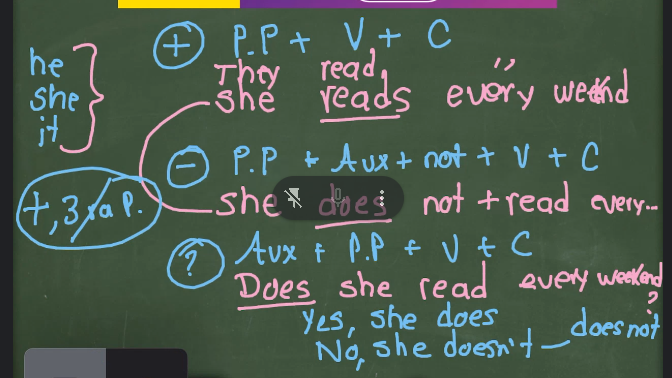 + P.P + V + C
he
she
it
They read,
she reads every weekend
- P.P + Aux + not + V + C
+, 3ra P.
she does not + read every...
? Aux + P.P + V + C
Does she read every weekend?
Yes, she does
No, she doesn't — does not